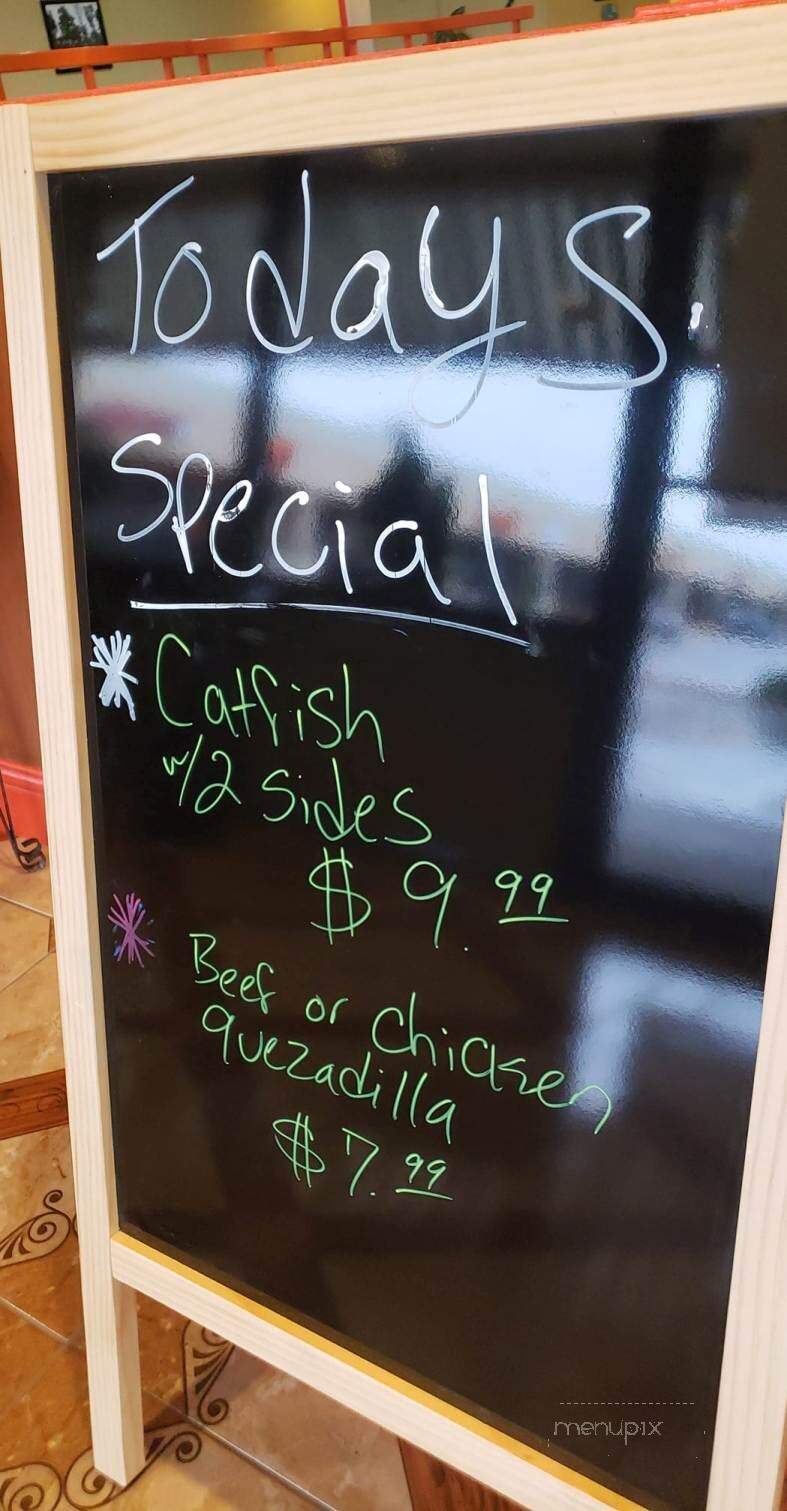 Todays
Special
Catfish
w/2 sides
$9.99
Beef or Chicken
quezadilla
$7.99
menupix